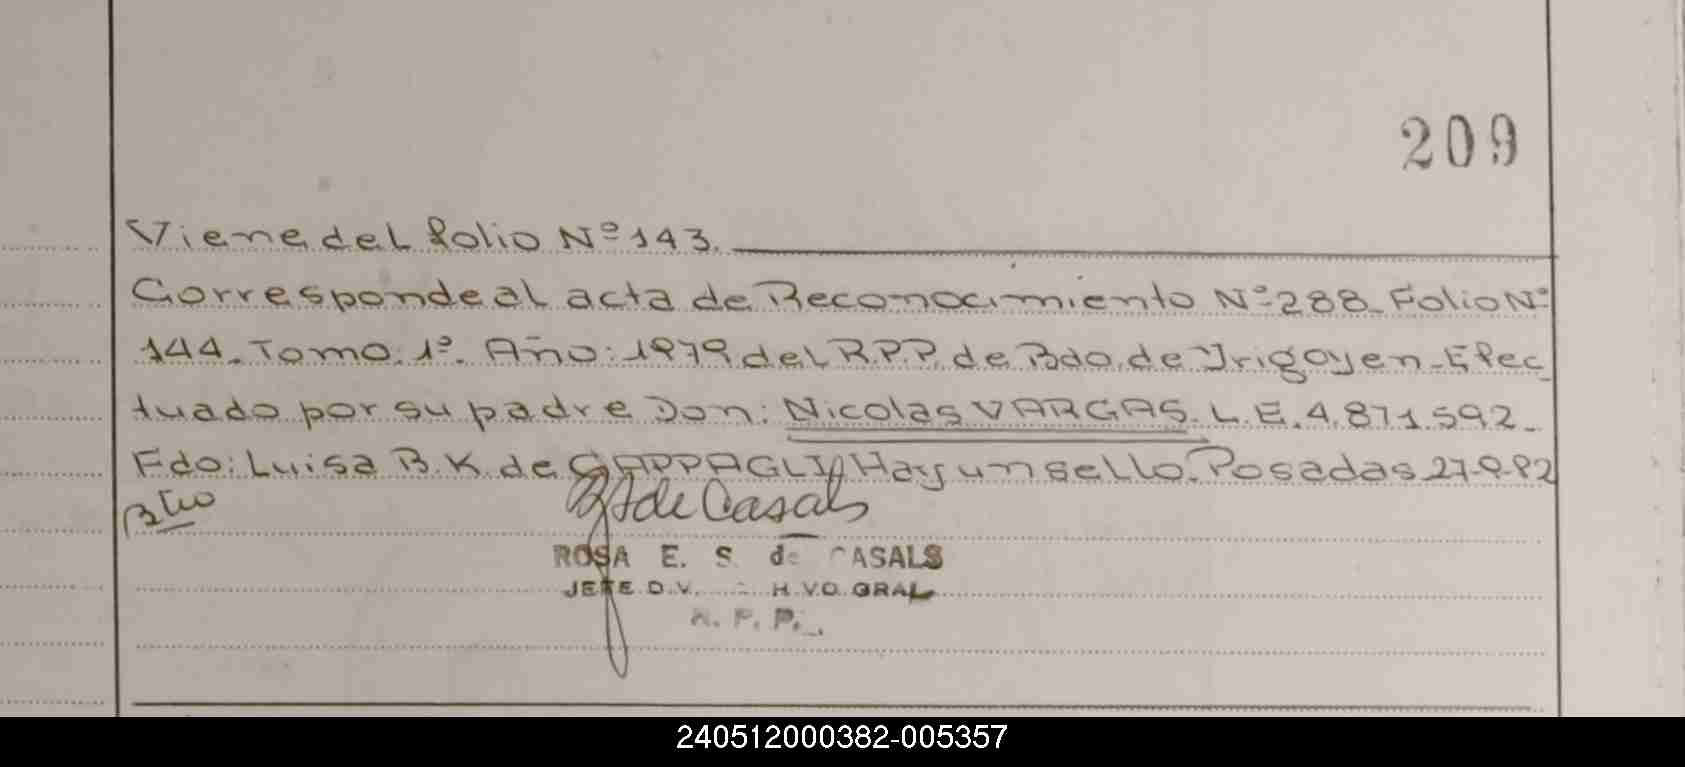 209
Viene del folio Nº 143.
Corresponde al acta de Reconocimiento Nº 288. Folio Nº
144. Tomo: 1º. Año: 1979 del R.P.P. de Bdo. de Yrigoyen - Efec
tuado por su padre Don: Nicolas VARGAS. L.E. 4.871.592.
Fdo: Luisa B. K. de Hay un sello. Posadas 27-9-82
de Casals
ROSA E. S. de CASALS
JEFE GRAL
R. P. P.
240512000382-005357